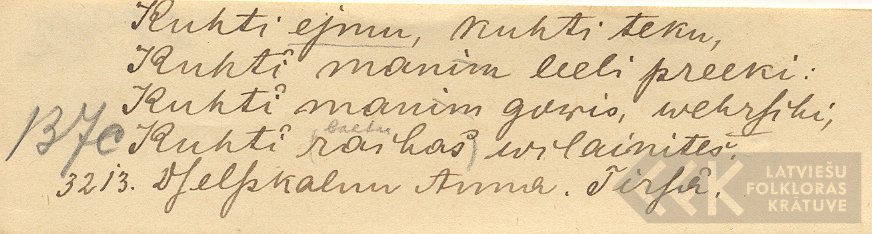 Kuhti ejmu, kuhti teku,
Kuhtî manim leeli preeki:
Kuhtî manim gowis, wehrsihi,
137c Kuhtî (raibas) wilainites.
3213. Dselskalnu Anna. Tirsâ.
LATVIEŠU
FOLKLORAS
KRĀTUVE